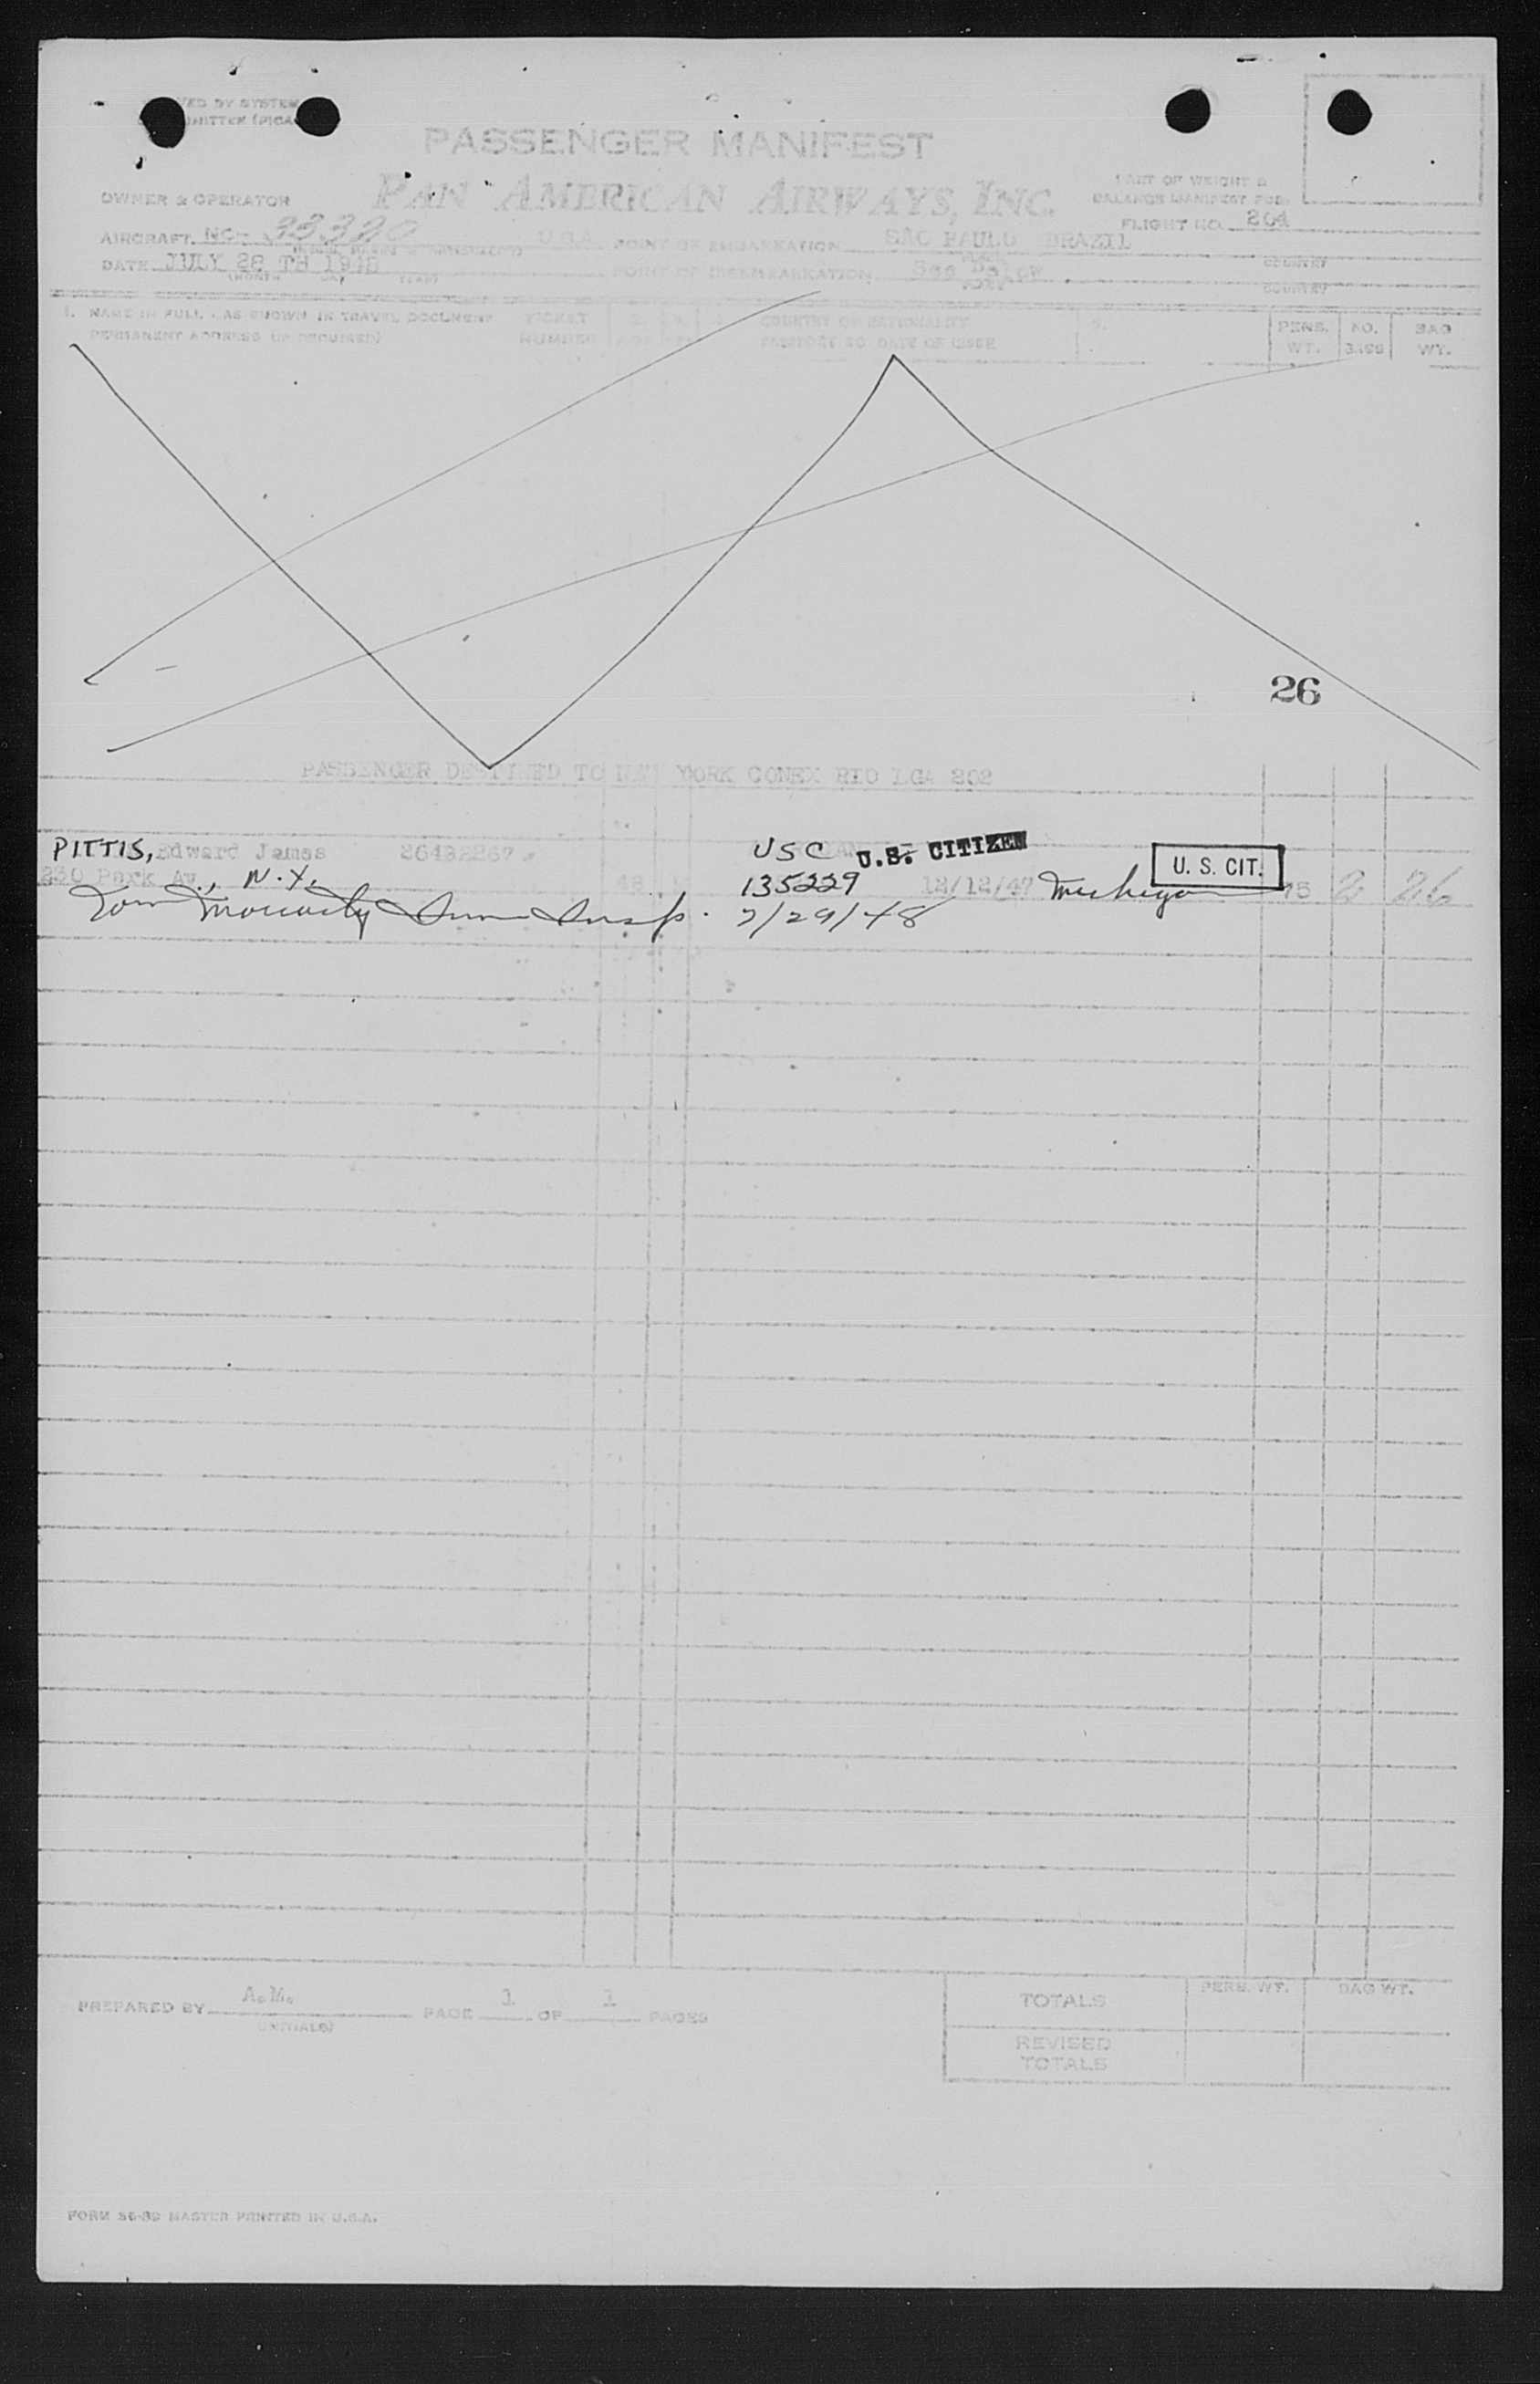 PASSENGER MANIFEST
PAN AMERICAN AIRWAYS, INC.
OWNER & OPERATOR
PART OF WEIGHT &
BALANCE MANIFEST FOR
FLIGHT NO. 204
AIRCRAFT NC- 33320 U.S.A. POINT OF EMBARKATION SAO PAULO BRAZIL
COUNTRY
DATE JULY 28 TH 1948 POINT OF DISEMBARKATION See Below
(MONTH DAY YEAR) COUNTRY
1. NAME IN FULL - AS SHOWN IN TRAVEL DOCUMENT TICKET COUNTRY OF NATIONALITY PERS. NO. BAG
PERMANENT ADDRESS (IF REQUIRED) NUMBER PASSPORT NO. DATE OF ISSUE WT. BAGS WT.
26
PASSENGER DESTINED TO NEW YORK CONEX RIO LGA 202
PITTIS, Edward James 26432267 USC U.S. CITIZEN U. S. CIT.
230 Park Av., N.Y. 48 135229 12/12/47 Michigan 75 2 26
Tom Moriarty Imm Insp. 7/29/48
PREPARED BY A.M. PAGE 1 OF 1 PAGES
(INITIALS)
TOTALS PERS. WT. BAG WT.
REVISED
TOTALS
MASTER PRINTED IN U.S.A.